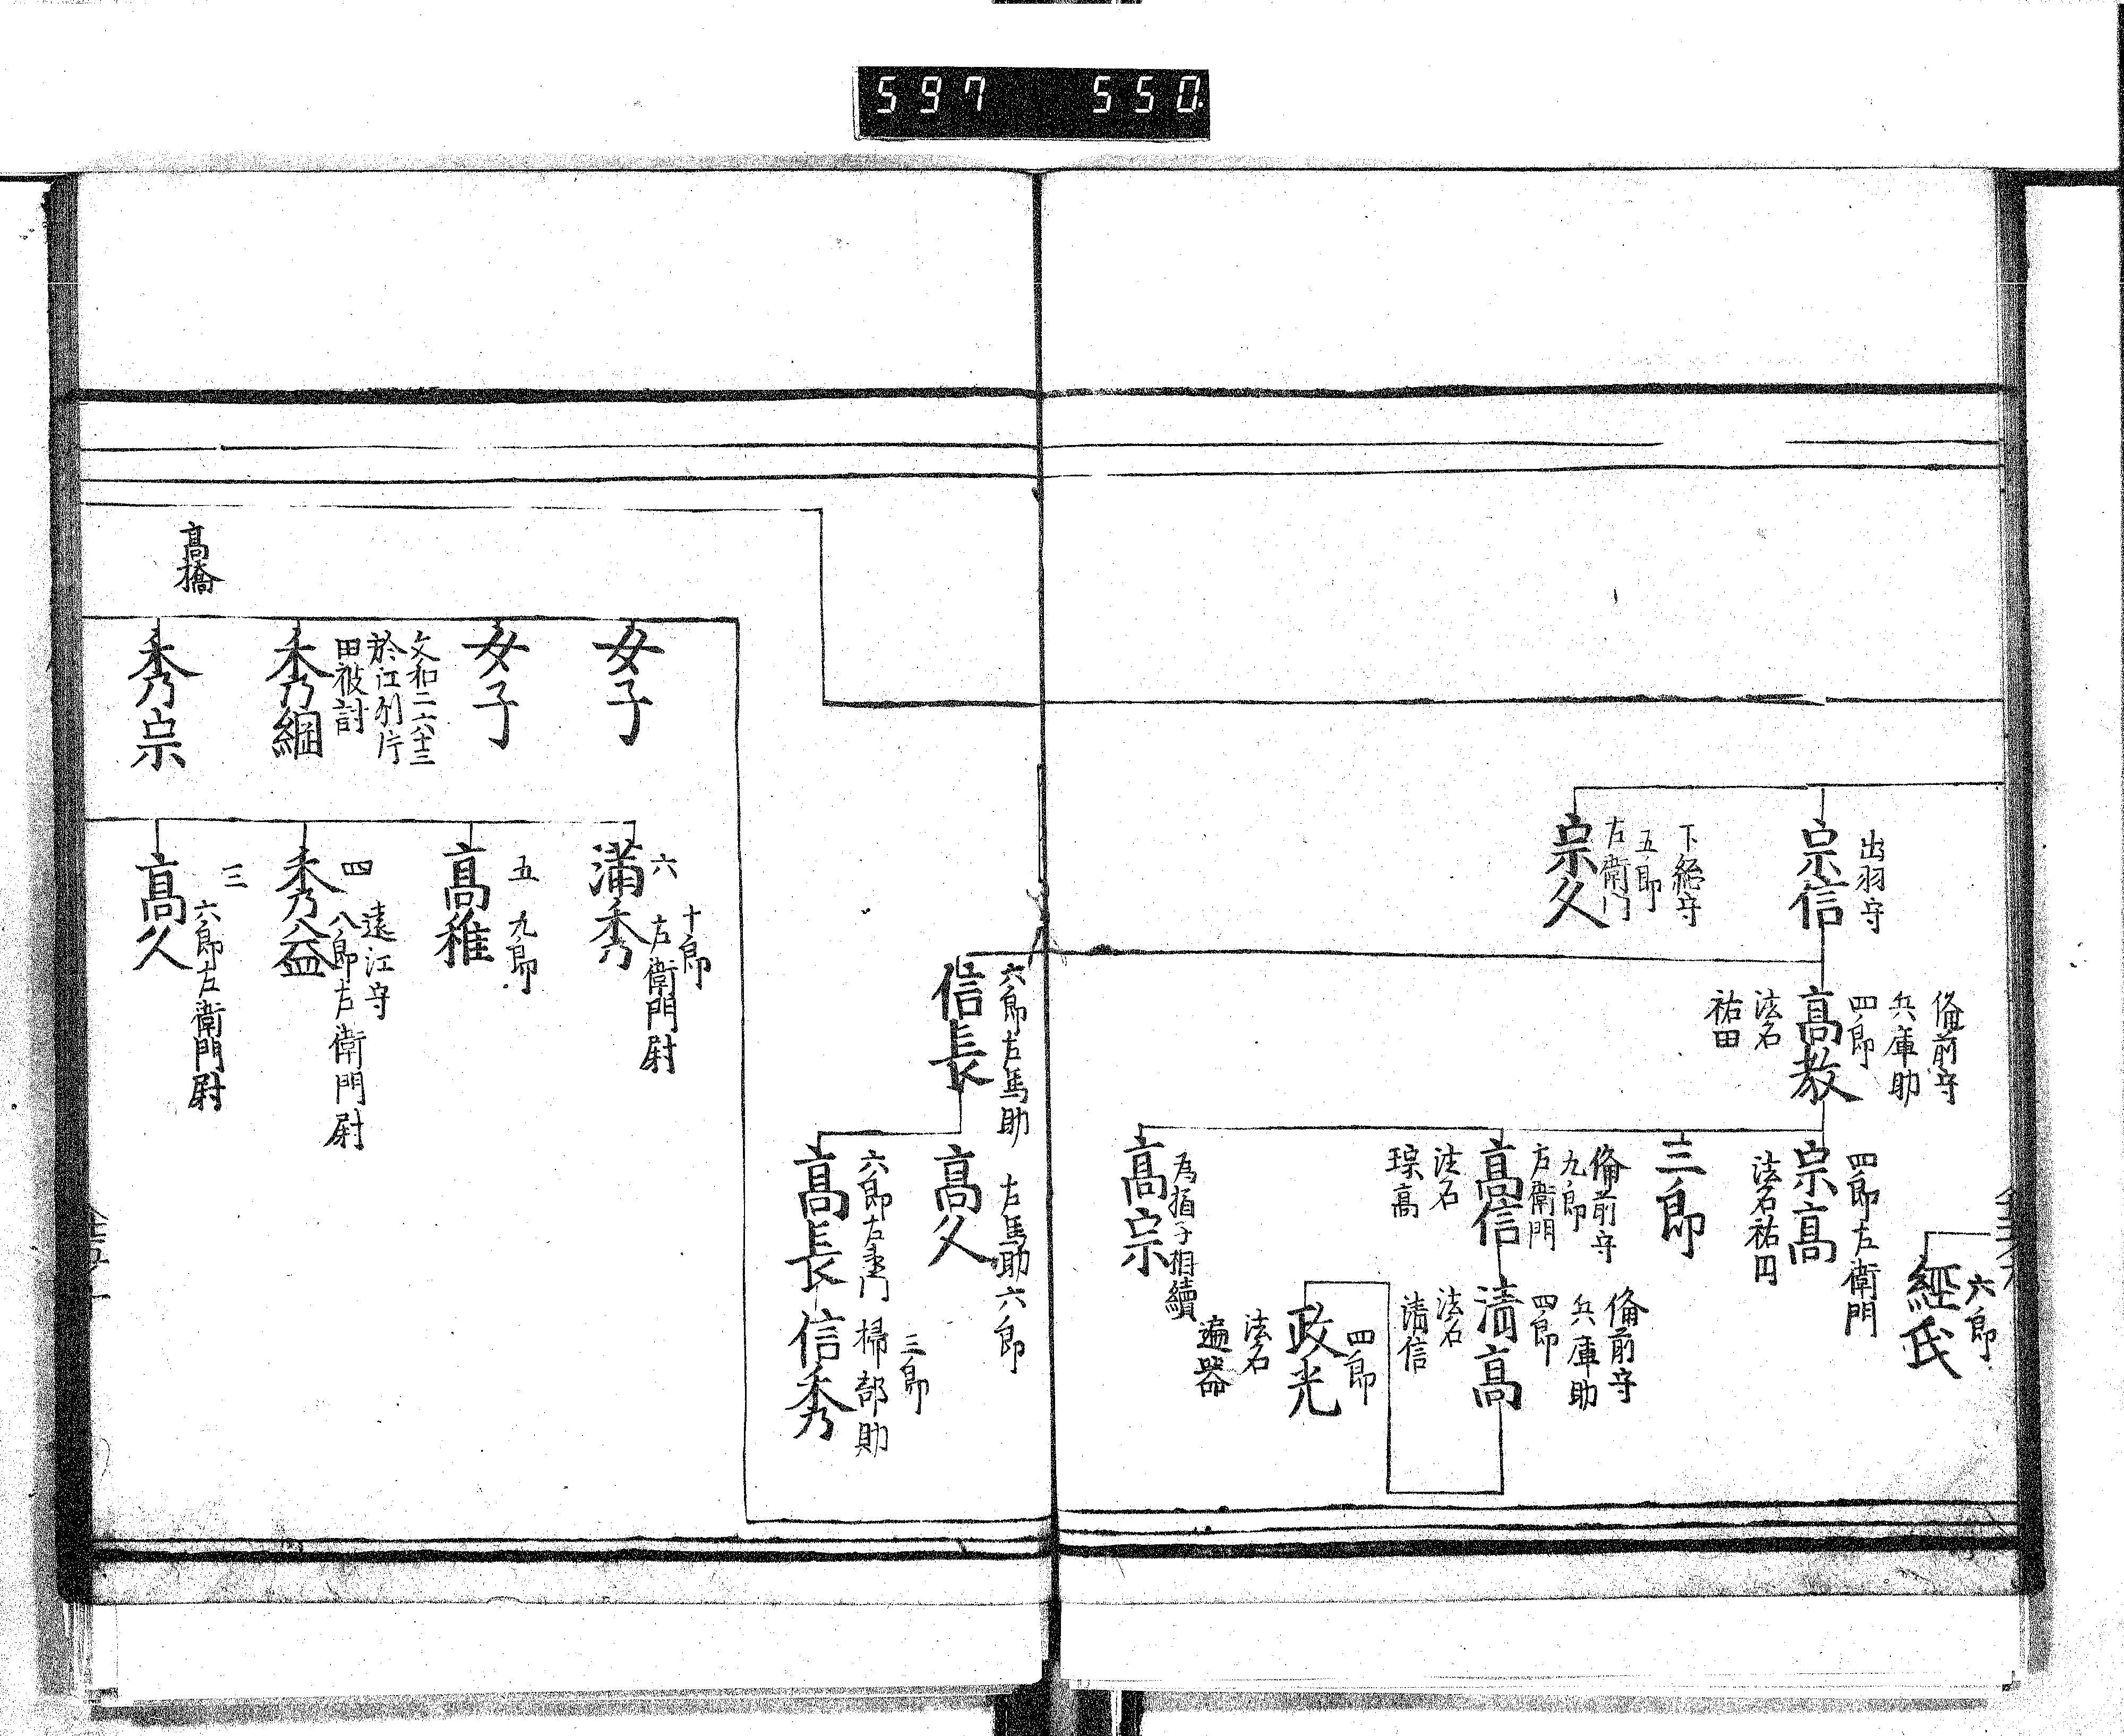 597 550
出羽守
宗信
下総守
五郎
左衛門
宗久
備前守
兵庫助
四郎
高教
法名
祐田
六郎
経氏
四郎左衛門
宗高
法名祐円
三郎
備前守
九郎
左衛門
高信
法名
琮高
備前守
兵庫助
四郎
清高
法名
清信
四郎
政光
法名
遍器
為猶子相續
高宗
六郎左馬助
信長
左馬助六郎
高久
六郎左衛門
高長
三郎
掃部助
信秀
女子
女子
文和二六十三
於江列片
田被討
秀綱
高橋
秀宗
六
十郎
左衛門尉
満秀
五
九郎
高稚
四
遠江守
八郎左衛門尉
秀益
三
六郎左衛門尉
高久